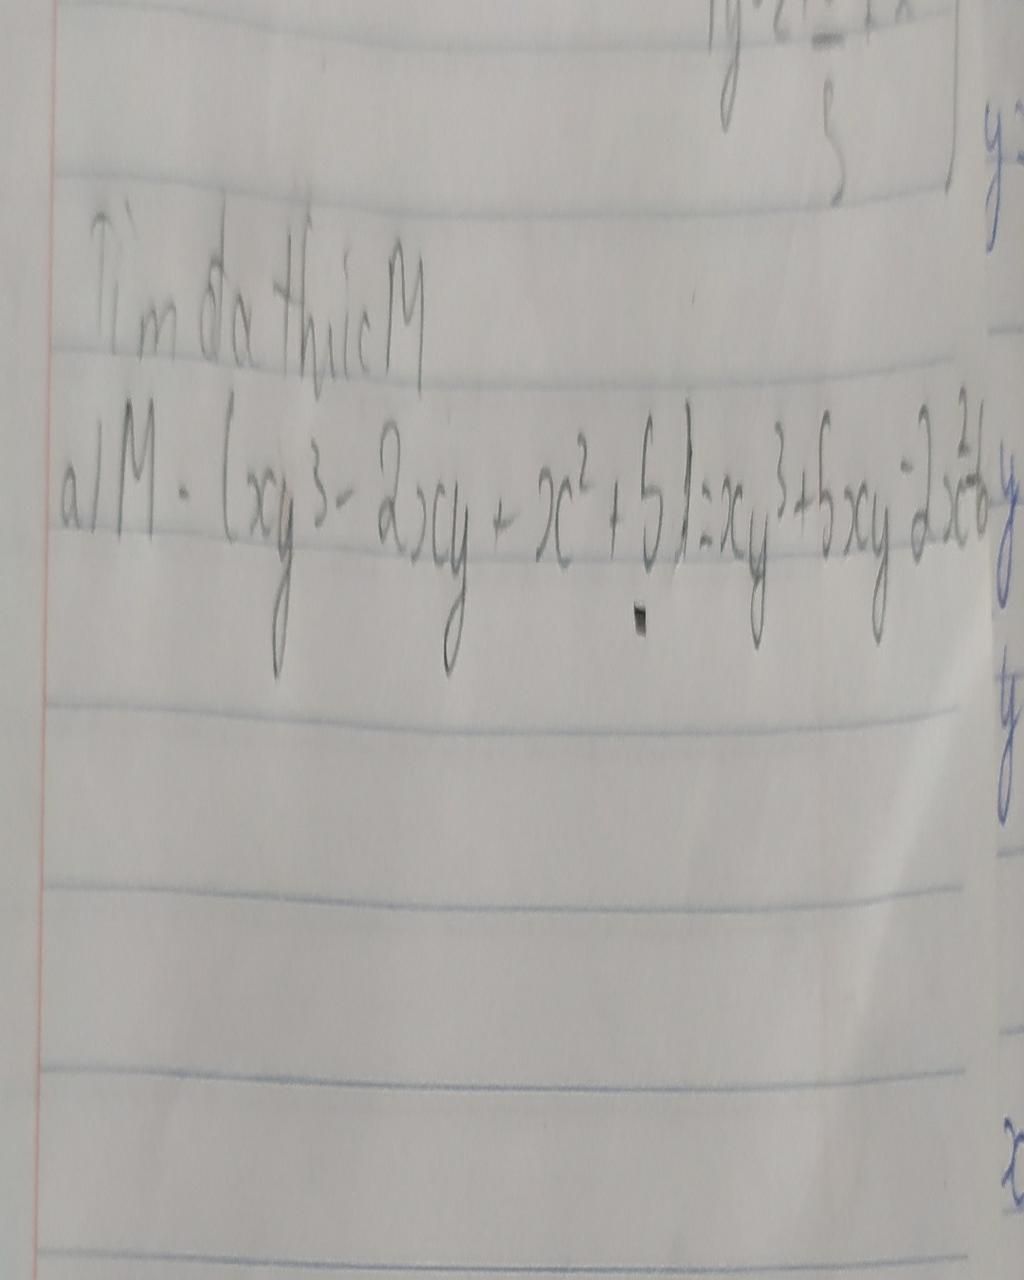 Tìm đa thức M
a/ M - (xy³ - 2xy + x² + 5) = xy³ + 5xy - 2x² - 6